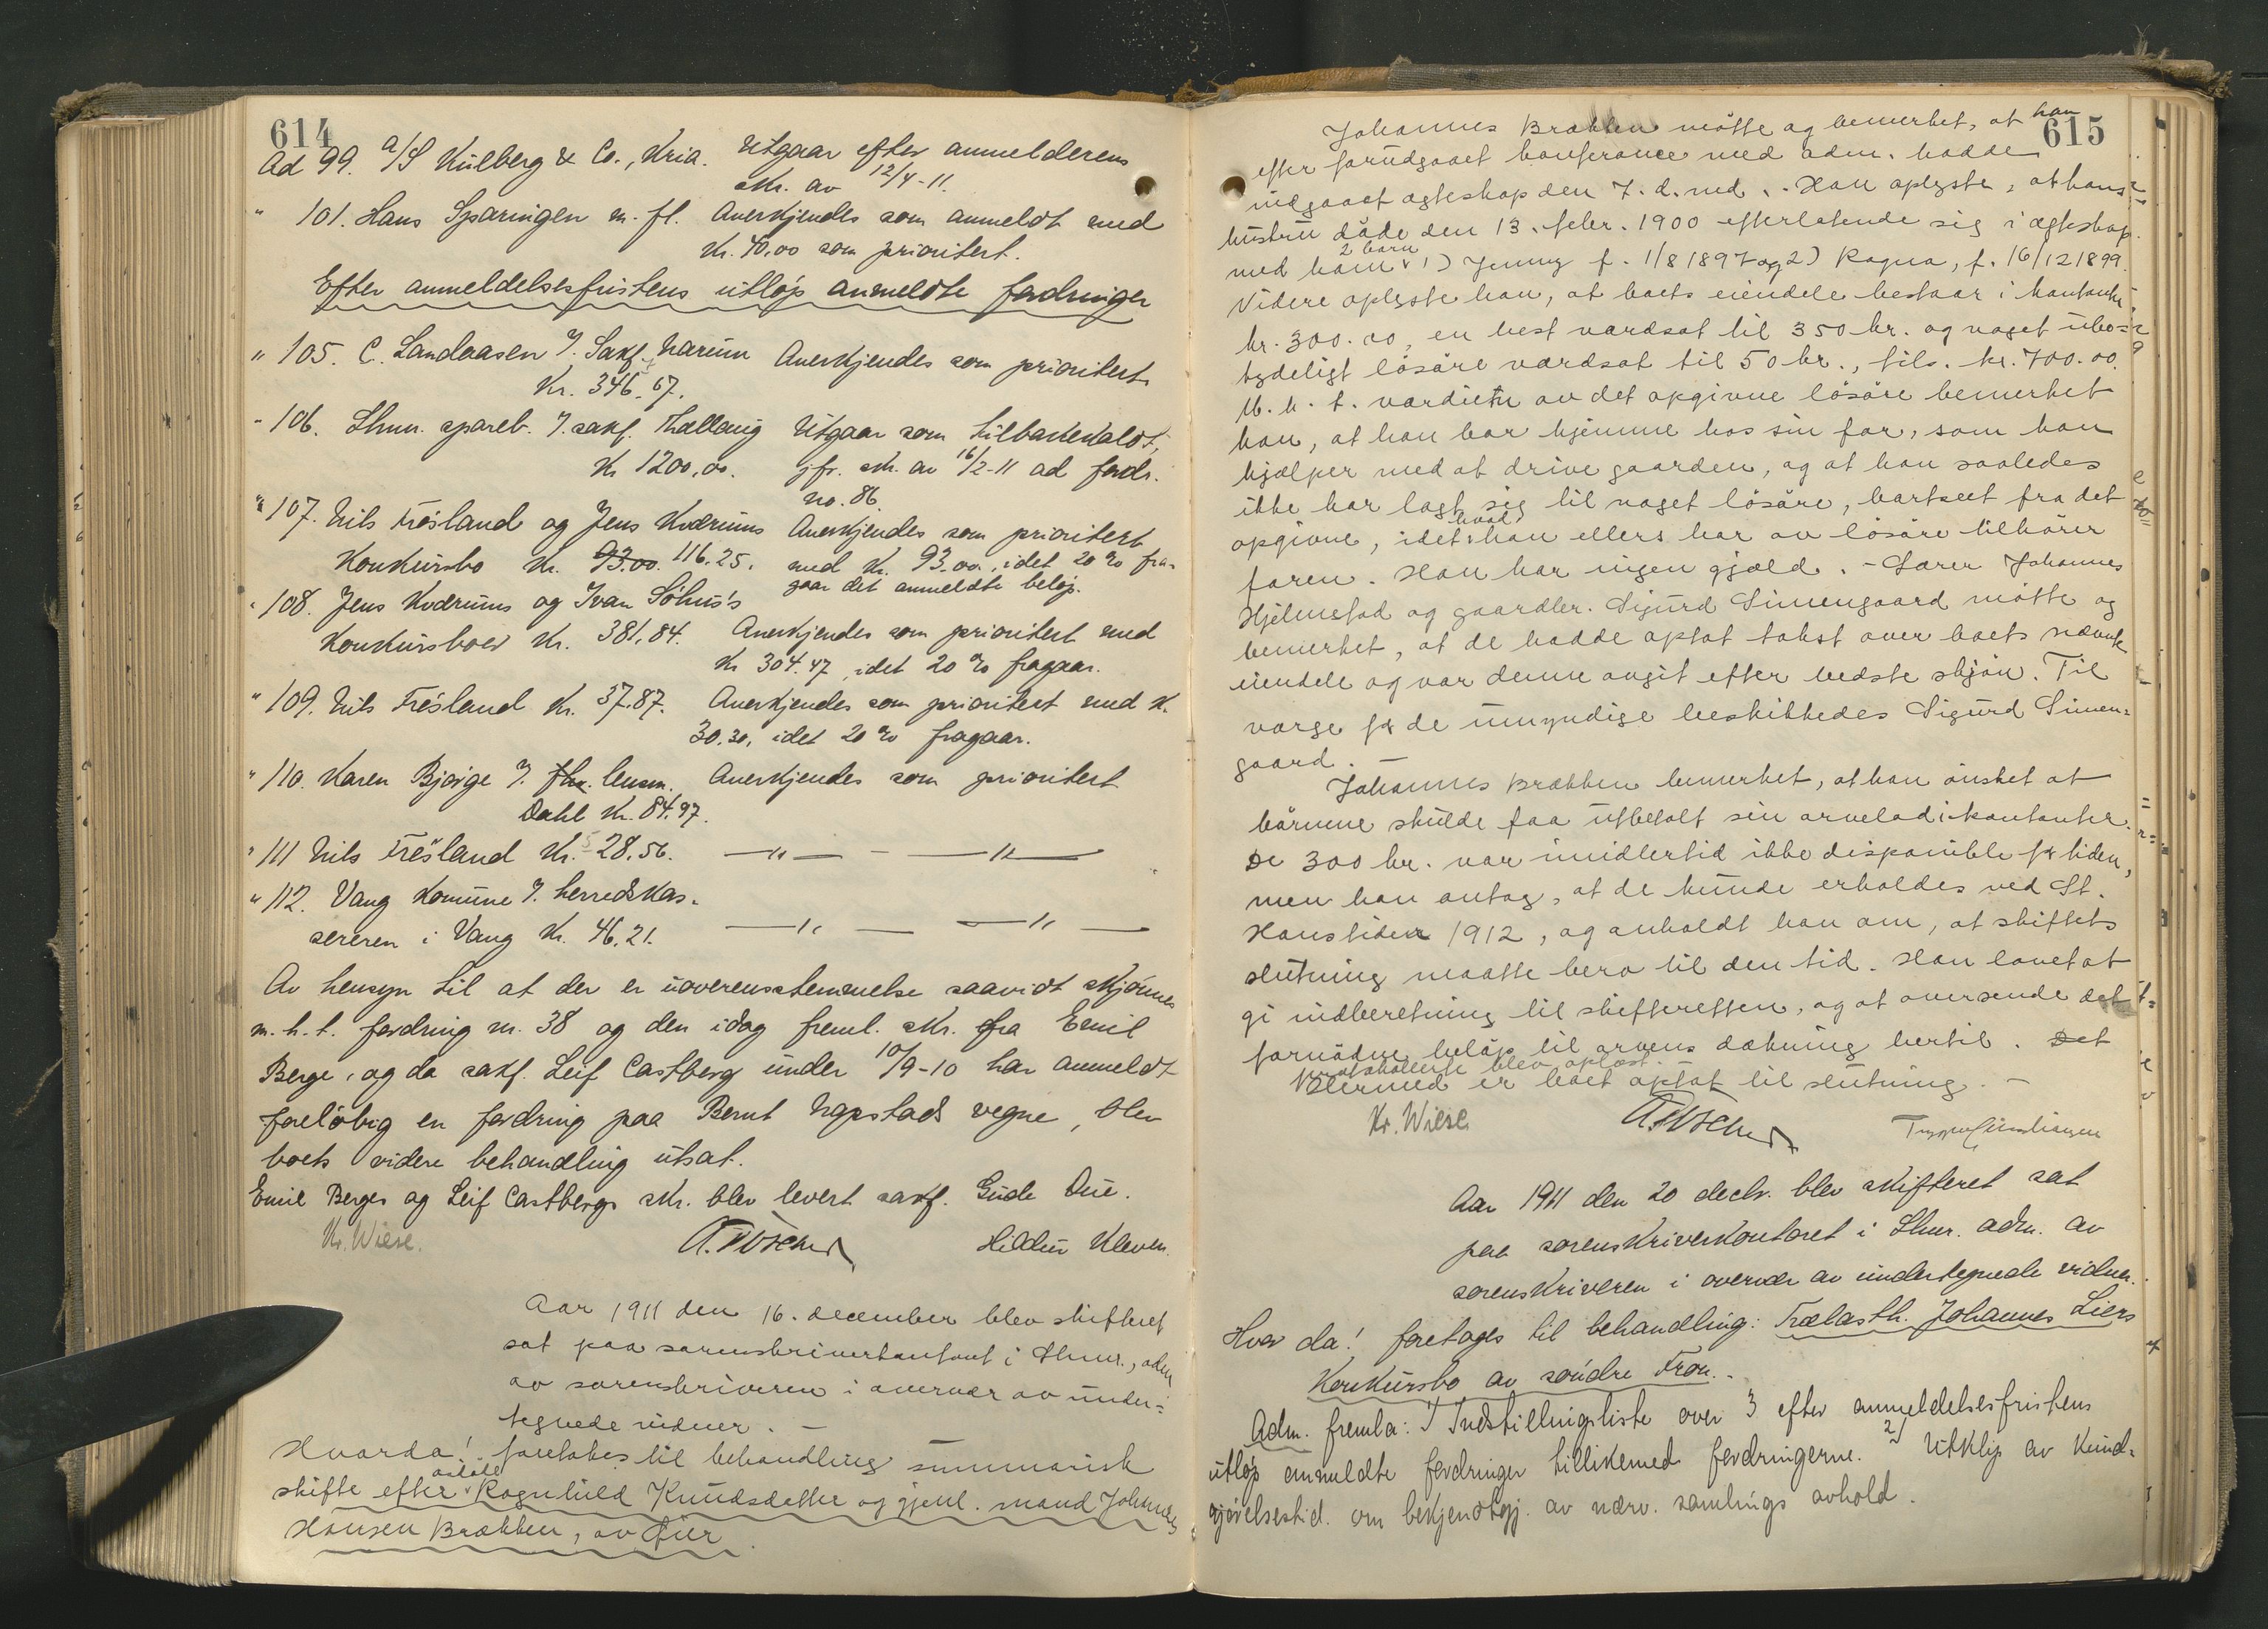 614
Ad 99. A/S Kulberg & Co., Kria. Utgaar efter anmelderens
skr. av 12/4-11.
" 101. Hans Sparingen m. fl. Anerkjendes som anmeldt med
Kr. 40,00 som prioritert.
Efter anmeldelsesfristens utløp anmeldte fordringer
" 105. C. Landaasen v. Sakf. Narum Anerkjendes som prioritert
Kr. 346.67.
" 106. Lhmr. spareb. v. sakf. Thallaug Utgaar som tilbakekaldt,
Kr 1200,00. jfr. skr. av 16/2-11 ad fordr.
no. 86.
" 107. Nils Frösland og Jens Kvdrums Anerkjendes som prioritert
Konkursbo Kr. 93.00. 116.25. med Kr. 93.00, idet 20 % fra-
gaar det anmeldte beløp.
" 108. Jens Kvdrums og Ivan Söhus's
Konkursboer Kr. 381,84. Anerkjendes som prioritert med
Kr 304.47, idet 20 % fragaar.
" 109. Nils Frösland Kr. 37.87. Anerkjendes som prioritert med K.
30.30, idet 20 % fragaar.
" 110. Karen Bjørge v. lensm. Anerkjendes som prioritert
Dahl Kr. 84.97.
" 111 Nils Frösland Kr. 28.56. —"— - —"—
" 112. Vang Komune v. herredskas-
sereren i Vang Kr. 46.21. —"— —"—
Av hensyn til at der er uoverensstemmelse saavidt skjönnes
m. h. t. fordring nr. 38 og den idag freml. skr. fra Emil
Berge, og da sakf. Leif Castberg under 10/9-10 har anmeldt
foreløbig en fordring paa Bernt vegne, blev
boets videre behandling utsat.
Emil Berges og Leif Castbergs skr. blev levert sakf. Gude Due.
Kr. Wiese. Hildur Kleven.
Aar 1911 den 16. december blev skifteret
sat paa sorenskriverkontoret i Lhmr., adm
av sorenskriveren i overvær av under=
tegnede vidner. —
Hvorda! foretokes til behandling summarisk
skifte efter avdøde Ragnhild Knudsdatter og gjenl. mand Johannes
Hansen Brækken, av Øier
615
Johannes Brækken møtte og bemerket, at han
efter forudgaaet konferance med adm. hadde
indgaaet egteskap den 7. d. md. - Han oplyste, at hans
hustru døde den 13. febr. 1900 efterlatende sig i ægteskap
med ham 2 barn 1) Jenny f. 1/8 1897 og 2) Ragna, f. 16/12 1899.
Videre oplyste han, at boets eiendele bestaar i kontanter
kr. 300.00, en hest værdsat til 350 kr. og noget ube=
tydeligt løsøre værdsat til 50 kr., tils. kr. 700.00.
M. h. t. værdien av det opgivne løsøre bemerket
han, at han bor hjemme hos sin far, som han
hjælper med at drive gaarden, og at han saaledes
ikke har lagt sig til noget løsøre, bortseet fra det
opgivne, idet hvad han ellers har av løsøre tilhører
faren. Han har ingen gjæld. - Lærer Johannes
Hjelmstad og gaardbr. Sigurd Simengaard møtte og
bemerket, at de hadde optat takst over boets nævnte
eiendele og var denne avgit efter bedste skjøn. Til
værge for de umyndige beskikkedes Sigurd Simen=
gaard. —
Johannes Brækken bemerket, at han ønsket at
børnene skulde faa utbetalt sin arvelod i kontanter.
De 300 kr. var imidlertid ikke disponible for tiden,
men han antog, at de kunde erholdes ved St.
Hanstider 1912, og anholdt han om, at skiftets
slutning maatte bero til den tid. Han lovet at
gi indberetning til skifteretten, og at oversende det
fornødne beløp til arvens dækning hertil. Det
protokollerte blev oplæst.
Hermed er boet optat til slutning. —
Kr. Wiese.
Aar 1911 den 20 decbr. blev skifteret sat
paa sorenskriverkontoret i Lhmr. adm. av
sorenskriveren i overvær av undertegnede vidner.
Hvor da! foretages til behandling: Trælasth. Johannes Liers
Konkursbo av søndre Fron.
Adm. fremla: 1) Indstillingsliste over 3 efter anmeldelsesfristens
utløp anmeldte fordringer tillikemed fordringerne. 2) Utklip av Kund-
gjørelsestid. om bekjendtgj. av nærv. samlings avhold.